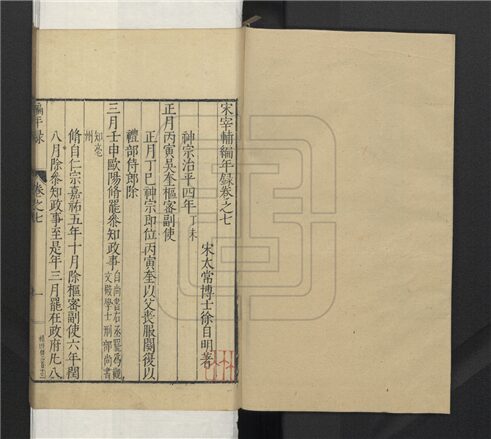 宋宰輔編年録卷之七
宋太常博士徐自明著
神宗治平四年丁未
正月丙寅吳奎樞密副使
正月丁巳神宗即位丙寅奎以父喪服闋復以
禮部侍郎除
三月壬申歐陽脩罷叅知政事自尚書右丞罷爲觀文殿學士刑部尚書知亳州
脩自仁宗嘉祐五年十月除樞密副使六年閏
八月除叅知政事至是年三月罷在政府凡八
編年録 卷之七 一